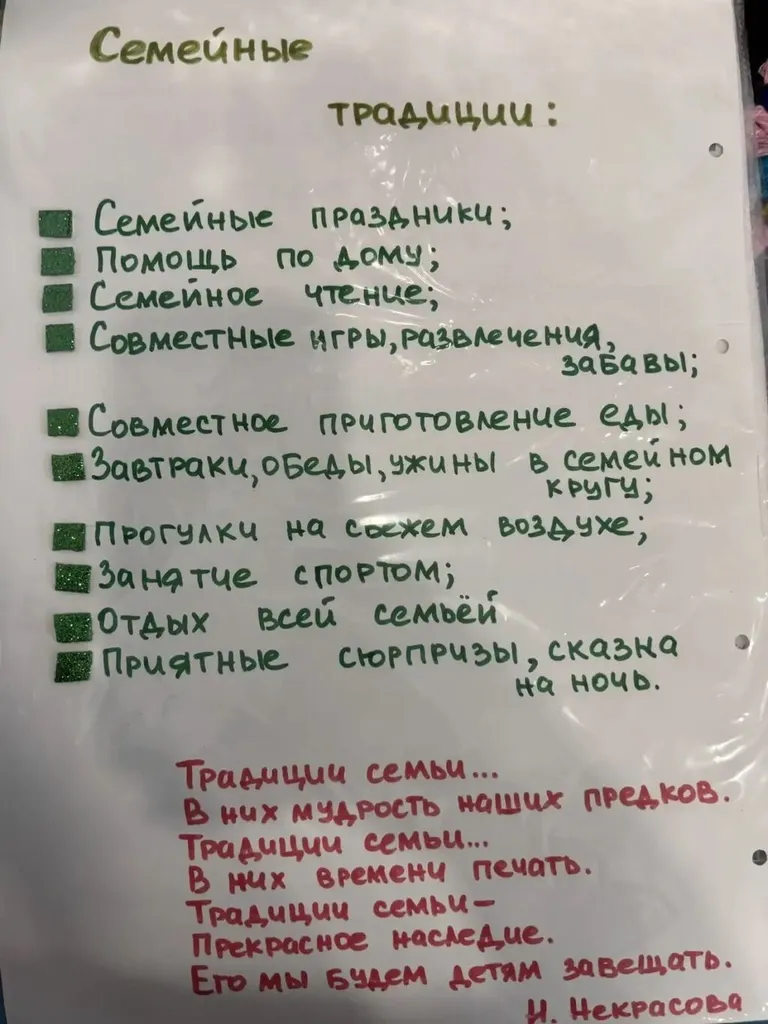 Семейные
традиции:
Семейные праздники;
Помощь по дому;
Семейное чтение;
Совместные игры, развлечения,
забавы;
Совместное приготовление еды;
Завтраки, обеды, ужины в семейном
кругу;
Прогулки на свежем воздухе;
Занятие спортом;
Отдых всей семьёй
Приятные сюрпризы, сказка
на ночь.
Традиции семьи...
В них мудрость наших предков.
Традиции семьи...
В них времени печать.
Традиции семьи–
Прекрасное наследие.
Его мы будем детям завещать.
Н. Некрасова